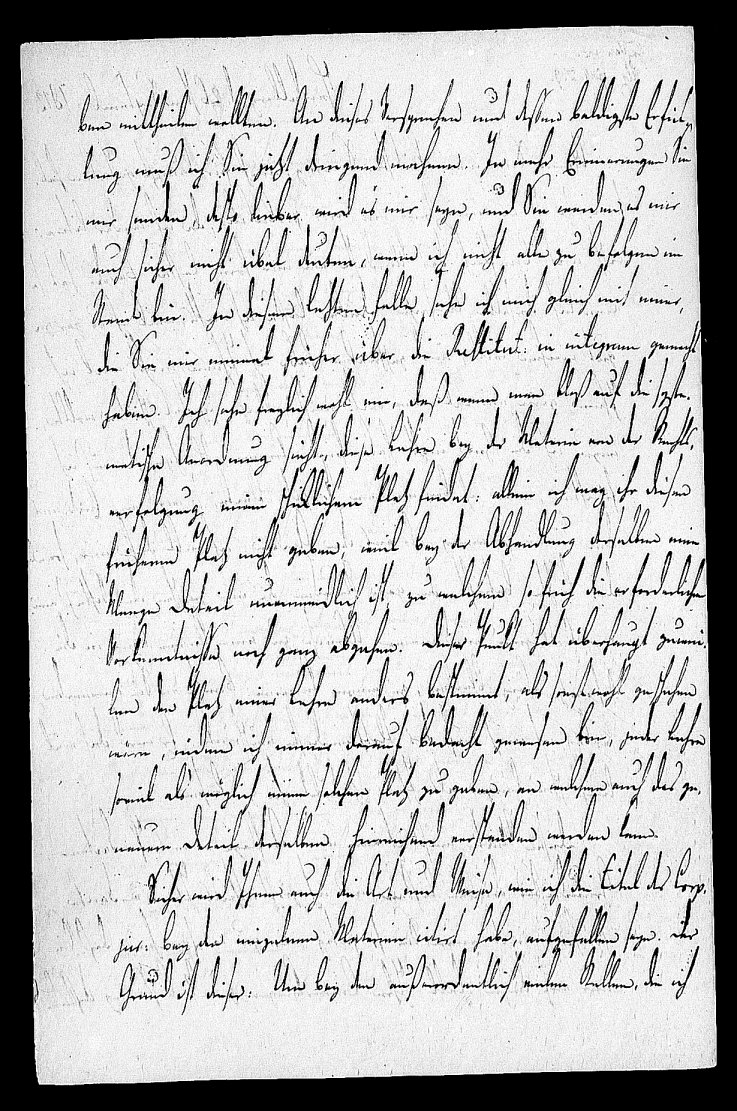 ben mittheilen wollten. An dieses Versprechen und dessen baldigste Erfül-
lung muß ich Sie jetzt dringend mahnen. Je mehr Erinnerungen Sie
mir senden, desto lieber wird es mir seyn, und Sie werden es mir
auch sicher nicht übel deuten, wenn ich nicht alle zu befolgen im
Stande bin. In diesem letzten Falle sehe ich mich gleich mit einer,
die Sie mir einmal früher über die Restitut. in integrum gemacht
haben. Ich sehe freylich wohl ein, daß wenn man bloß auf die syste-
matische Anordnung sieht, diese Lehre bey der Materie von der Rechts-
verfolgung einen schicklichern Platz findet: allein ich mag ihr diesen
früheren Platz nicht geben, weil bey der Abhandlung derselben eine
Menge Detail unvermeidlich ist, zu welchem so früh die erforderlichen
Vorkenntnisse noch ganz abgehen. Dieser Punkt hat überhaupt zuwei-
len den Platz einer Lehre anders bestimmt, als sonst wohl geschehen
wäre, indem ich immer darauf bedacht gewesen bin, jeder Lehre
soviel als möglich einen solchen Platz zu geben, an welchem auch das ge-
nauere Detail derselben hinreichend verstanden werden kann.
Sicher wird Ihnen auch die Art und Weise, wie ich die Titel des Corp.
jur. bey den einzelnen Materien citirt habe, aufgefallen seyn. Der
Grund ist dieser: Um bey den außerordentlich vielen Stellen, die ich